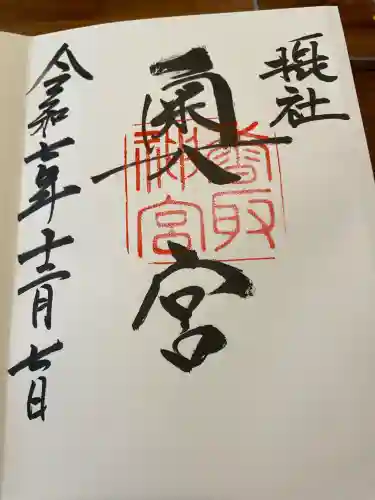 攝社
奥宮
香取神宮
令和七年十二月七日